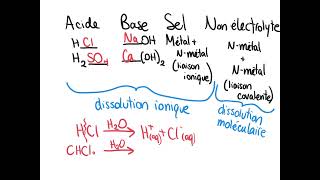 Acide Base Sel Non électrolyte
HCl NaOH Métal + N-métal (liaison ionique) N-métal + N-métal (liaison covalente)
H₂SO₄ Ca(OH)₂
dissolution ionique dissolution moléculaire
HCl H₂O → H⁺(aq) + Cl⁻(aq)
H₂O →